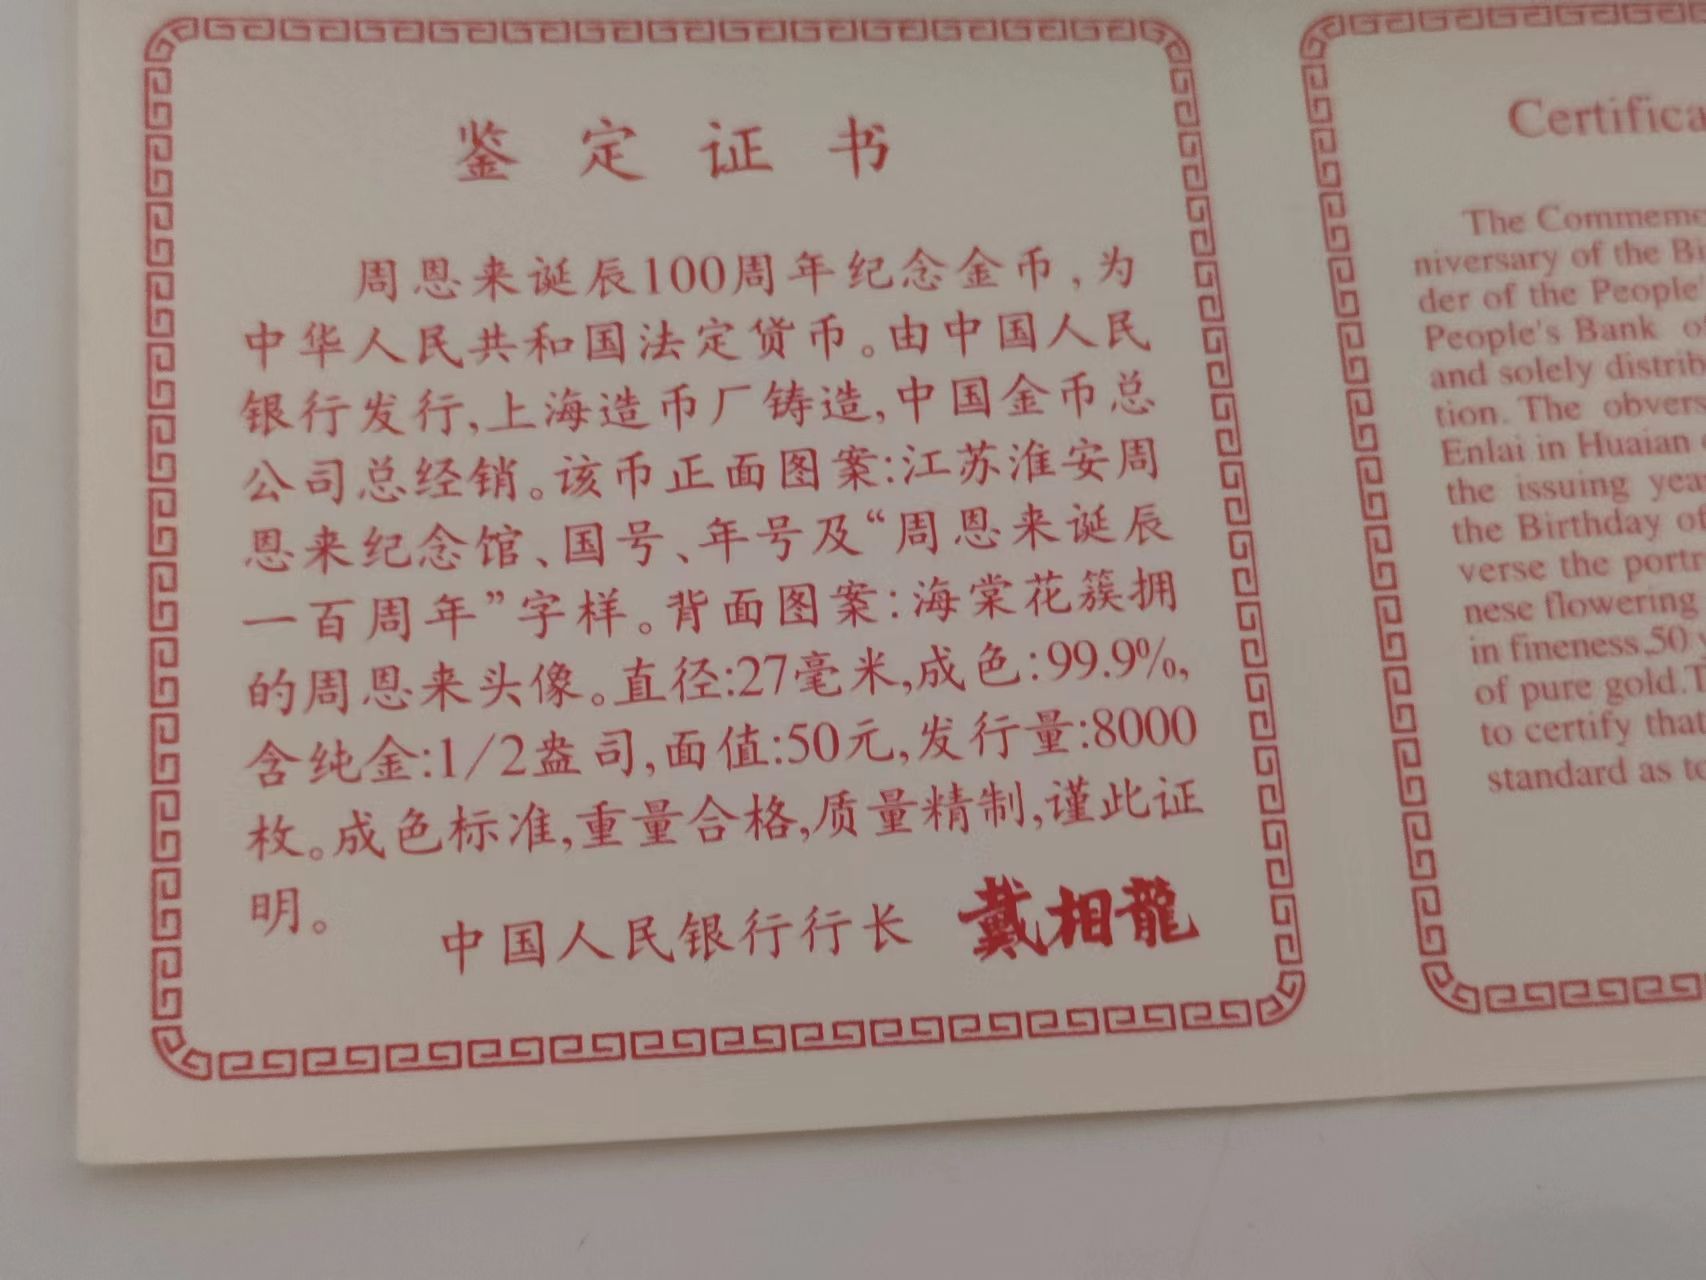 鉴定证书
周恩来诞辰100周年纪念金币,为
中华人民共和国法定货币。由中国人民
银行发行,上海造币厂铸造,中国金币总
公司总经销。该币正面图案:江苏淮安周
恩来纪念馆、国号、年号及“周恩来诞辰
一百周年”字样。背面图案:海棠花簇拥
的周恩来头像。直径:27毫米,成色:99.9%,
含纯金:1/2盎司,面值:50元,发行量:8000
枚。成色标准,重量合格,质量精制,谨此证
明。
中国人民银行行长 戴相龍
The
niversary of the
der of the
People's Bank
and solely
tion. The
Enlai in Huaian
the issuing
the Birthday
verse the
nese flowering
in fineness,50
of pure gold.
to certify that
standard as